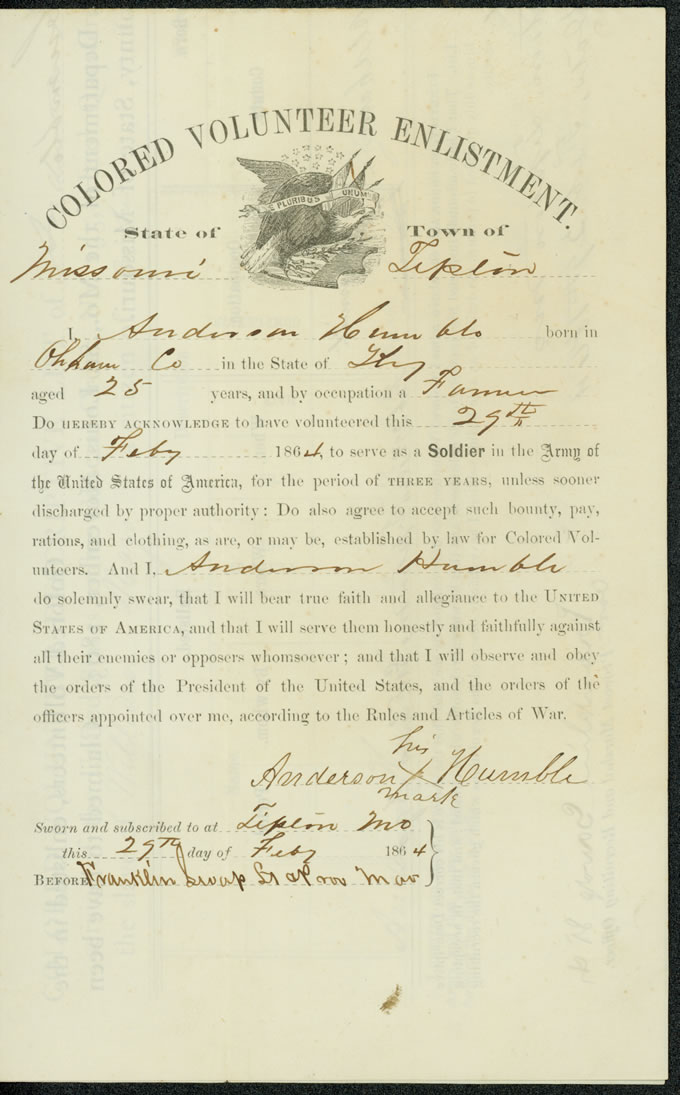 COLORED VOLUNTEER ENLISTMENT.
E PLURIBUS UNUM
State of Town of
Missouri Tipton
I, Anderson Humble born in
Oldham Co in the State of Ky
aged 25 years, and by occupation a Farmer
Do HEREBY ACKNOWLEDGE to have volunteered this 29th
day of Feby 1864, to serve as a Soldier in the Army of
the United States of America, for the period of THREE YEARS, unless sooner
discharged by proper authority: Do also agree to accept such bounty, pay,
rations, and clothing, as are, or may be, established by law for Colored Vol-
unteers. And I, Anderson Humble
do solemnly swear, that I will bear true faith and allegiance to the UNITED
STATES OF AMERICA, and that I will serve them honestly and faithfully against
all their enemies or opposers whomsoever; and that I will observe and obey
the orders of the President of the United States, and the orders of the
officers appointed over me, according to the Rules and Articles of War.
his
Anderson X Humble
mark
Sworn and subscribed to at Tipton Mo
this 29th day of Feby 1864
BEFORE Franklin Swap Lt & Prov Mar